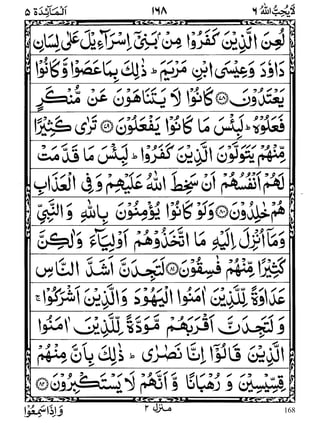 المآئدة ٥ ١٦٨ لا يحب الله ٦
لُعِنَ الَّذِيْنَ كَفَرُوْا مِنْۢ بَنِيْٓ اِسْرَآءِيْلَ عَلٰى لِسَانِ
دَاوٗدَ وَعِيْسَى ابْنِ مَرْيَمَ ؕ ذٰلِكَ بِمَا عَصَوْا وَّكَانُوْا
يَعْتَدُوْنَ ﴿۷۸﴾ كَانُوْا لَا يَتَنَاهَوْنَ عَنْ مُّنْكَرٍ
فَعَلُوْهُ ؕ لَبِئْسَ مَا كَانُوْا يَفْعَلُوْنَ ﴿۷۹﴾ تَرٰى كَثِيْرًا
مِّنْهُمْ يَتَوَلَّوْنَ الَّذِيْنَ كَفَرُوْا ؕ لَبِئْسَ مَا قَدَّمَتْ
لَهُمْ اَنْفُسُهُمْ اَنْ سَخِطَ اللّٰهُ عَلَيْهِمْ وَفِي الْعَذَابِ
هُمْ خٰلِدُوْنَ ﴿۸۰﴾ وَلَوْ كَانُوْا يُؤْمِنُوْنَ بِاللّٰهِ وَالنَّبِيِّ
وَمَآ اُنْزِلَ اِلَيْهِ مَا اتَّخَذُوْهُمْ اَوْلِيَآءَ وَلٰكِنَّ
كَثِيْرًا مِّنْهُمْ فٰسِقُوْنَ ﴿۸۱﴾ لَتَجِدَنَّ اَشَدَّ النَّاسِ
عَدَاوَةً لِّلَّذِيْنَ اٰمَنُوا الْيَهُوْدَ وَالَّذِيْنَ اَشْرَكُوْا ۚ
وَلَتَجِدَنَّ اَقْرَبَهُمْ مَّوَدَّةً لِّلَّذِيْنَ اٰمَنُوا
الَّذِيْنَ قَالُوْٓا اِنَّا نَصٰرٰى ؕ ذٰلِكَ بِاَنَّ مِنْهُمْ
قِسِّيْسِيْنَ وَرُهْبَانًا وَّاَنَّهُمْ لَا يَسْتَكْبِرُوْنَ ﴿۸۲﴾
وَاِذَا سَمِعُوْا منزل ٢ 168